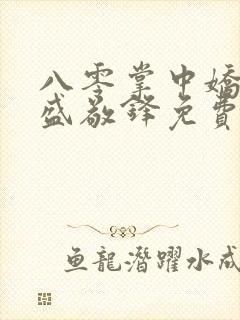 八零掌中嬌
盛敬鋒免費
鱼龍潛躍水成